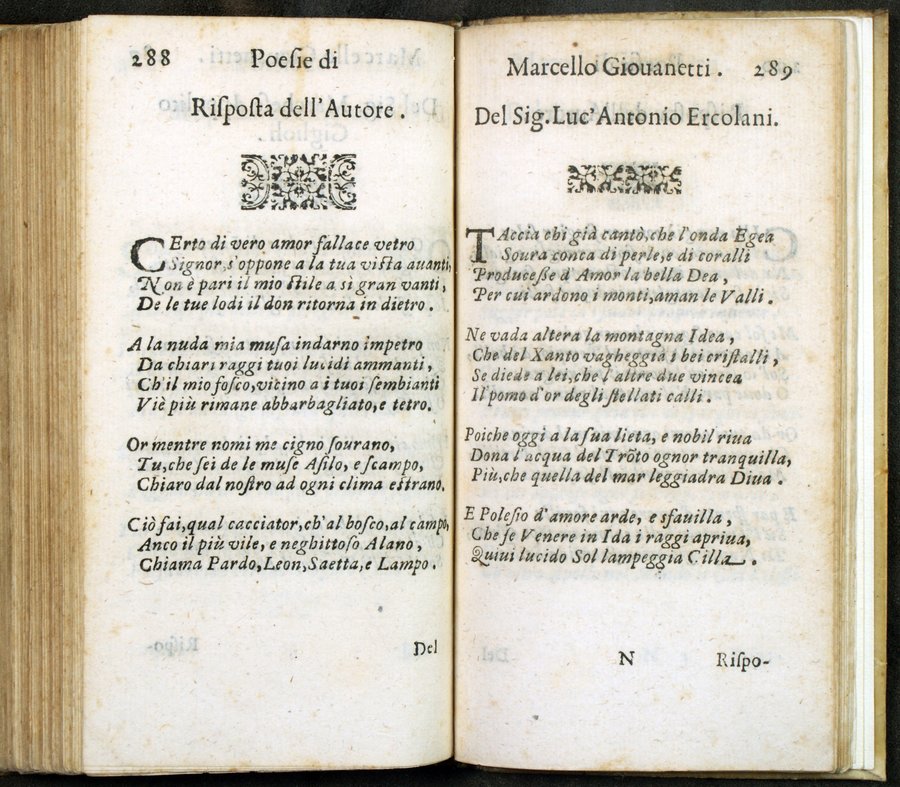 288 Poeſie di
Riſpoſta dell'Autore.
CErto di vero amor fallace vetro
Signor, s'oppone a la tua viſta auanti,
Non è pari il mio ſtile a sì gran vanti,
De le tue lodi il don ritorna in dietro.
A la nuda mia muſa indarno impetro
Da chiari raggi tuoi lucidi ammanti,
Ch'il mio foſco, vicino a i tuoi ſembianti
Viè più rimane abbarbagliato, e tetro.
Or mentre nomi me cigno ſourano,
Tu, che ſei de le muſe Aſilo, e ſcampo,
Chiaro dal noſtro ad ogni clima eſtrano.
Ciò fai, qual cacciator, ch'al boſco, al campo,
Anco il più vile, e neghittoſo Alano,
Chiama Pardo, Leon, Saetta, e Lampo.
Del
Marcello Giouanetti. 289
Del Sig. Luc' Antonio Ercolani.
TAccia chi già cantò, che l'onda Egea
Soura conca di perle, e di coralli
Produceſſe d'Amor la bella Dea,
Per cui ardono i monti, aman le Valli.
Ne vada altera la montagna Idea,
Che del Xanto vagheggia i bei criſtalli,
Se diede a lei, che l'altre due vincea
Il pomo d'or degli ſtellati calli.
Poiche oggi a la ſua lieta, e nobil riua
Dona l'acqua del Trõto ognor tranquilla,
Più, che quella del mar leggiadra Diua.
E Poleſio d'amore arde, e sfauilla,
Che ſe Venere in Ida i raggi apriua,
Quiui lucido Sol lampeggia Cilla.
N Riſpo-